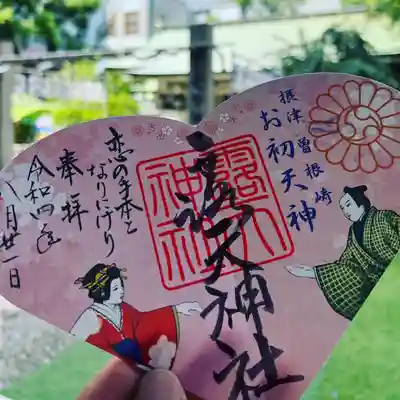 摂津曽根崎
お初天神
露天神社
露天神社
恋の手本と
なりにけり
奉拝
令和四年
八月廿一日